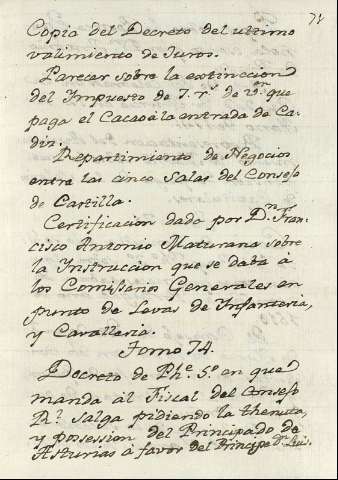 71
Copia del Decreto del ultimo
valimiento de Juros.
Parecer sobre la extinccion
del Impuesto de 7. r.s de v.on que
paga el Cacao à la entrada de Ca-
diz.
Repartimiento de Negocios
entre las cinco Salas del Consejo
de Castilla.
Certificacion dada por D.n Fran-
cisco Antonio Maturana sobre
la Instruccion que se daba à
los Comissarios Generales en
punto de Levas de Infanteria,
y Cavalleria.
Tomo 74.
Decreto de Phe. 5.o en que
manda àl Fiscal del Consejo
R.l salga pidiendo la thenuta,
y possession del Principado de
Asturias à favor del Principe D.n Luis.